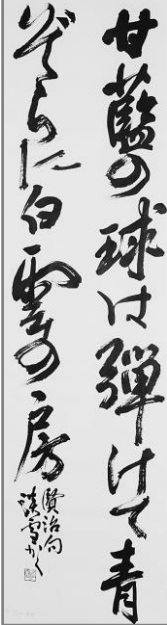 甘藍の球は弾けて青
ぞらに白雲の房
賢治句
淡雪かく